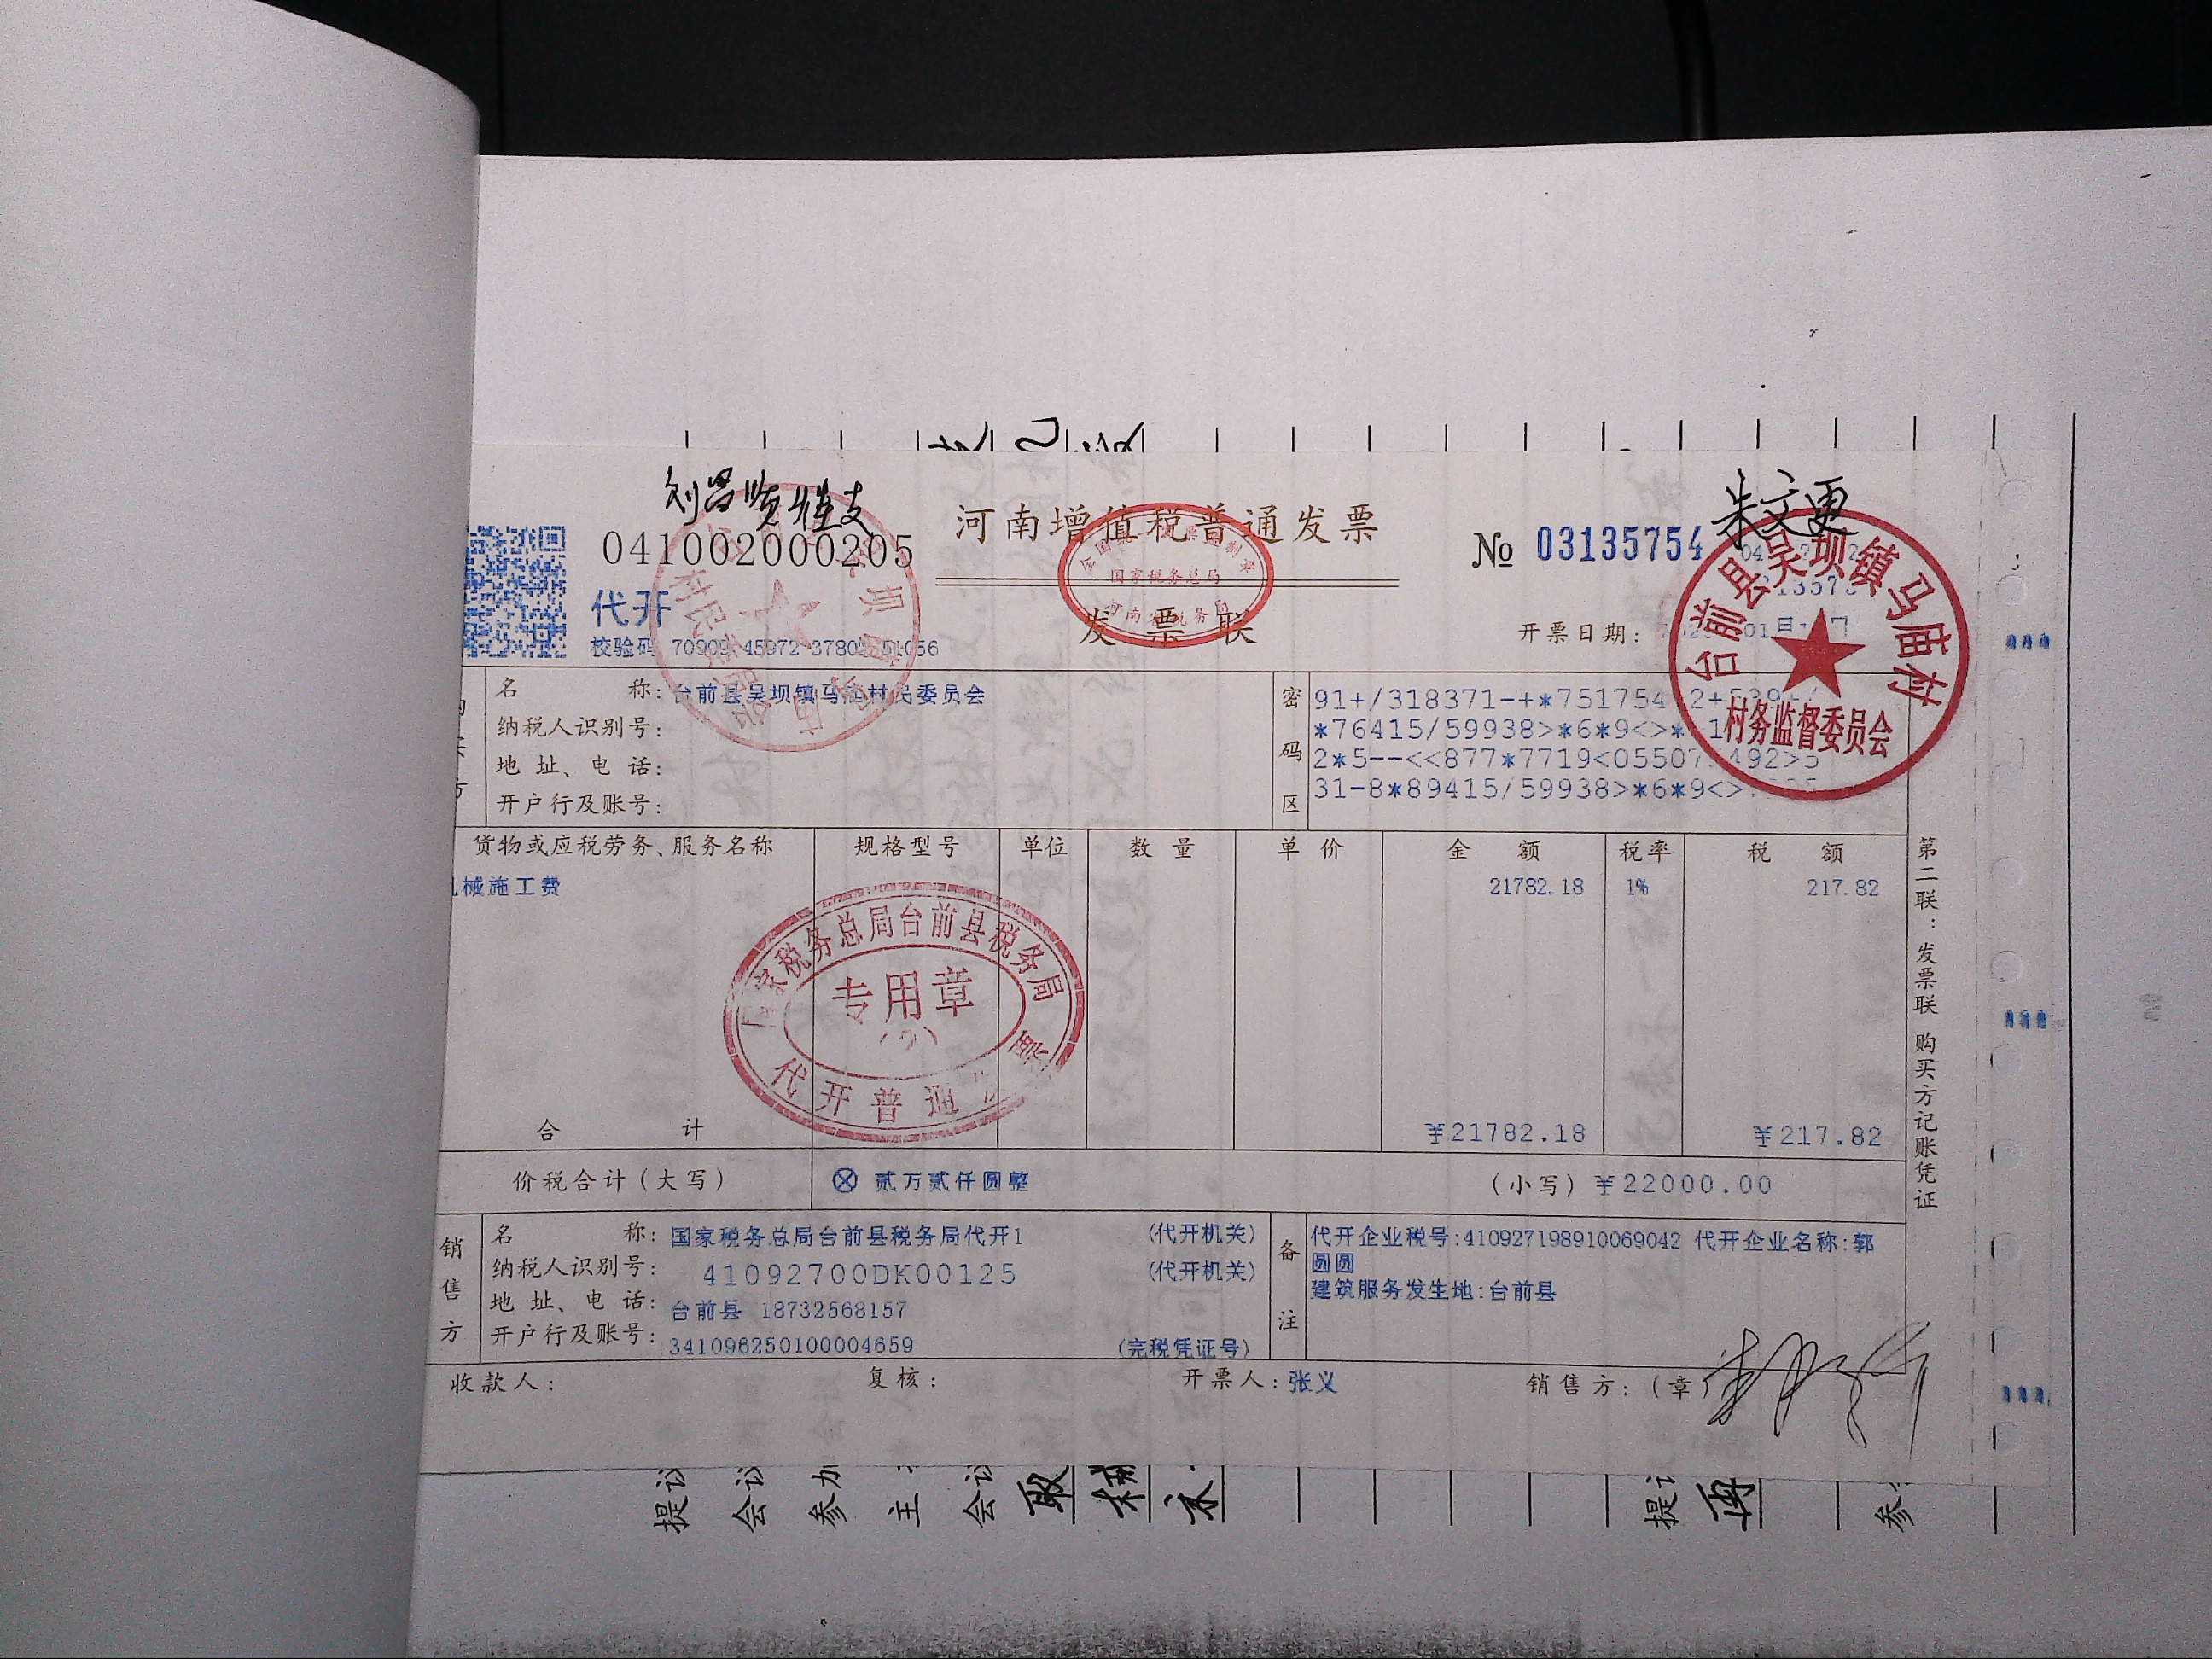 河南增值税普通发票
041002000205
№ 03135754
朱文更
代开
发票联
国家税务总局
校验码
开票日期:
台前县吴坝镇马庙村
村务监督委员会
名称: 台前县吴坝镇马庙村民委员会
纳税人识别号:
地址、电话:
开户行及账号:
密码区
*76415/59938>*6*9<>*
31-8*89415/59938>*6*9<>
货物或应税劳务、服务名称 规格型号 单位 数量 单价 金额 税率 税额
械施工费 21782.18 1% 217.82
国家税务总局台前县税务局
专用章
代开普通
合计 ¥21782.18 ¥217.82
价税合计(大写) ⊗ 贰万贰仟圆整 (小写) ¥22000.00
第二联:发票联 购买方记账凭证
销售方
名称: 国家税务总局台前县税务局代开1 (代开机关)
纳税人识别号: 41092700DK00125 (代开机关)
地址、电话: 台前县 18732568157
开户行及账号: 341096250100004659 (完税凭证号)
备注
代开企业税号:410927198910069042 代开企业名称:郭
圆圆
建筑服务发生地:台前县
收款人: 复核: 开票人: 张义 销售方:(章)
提议
会议
参加
主
会议